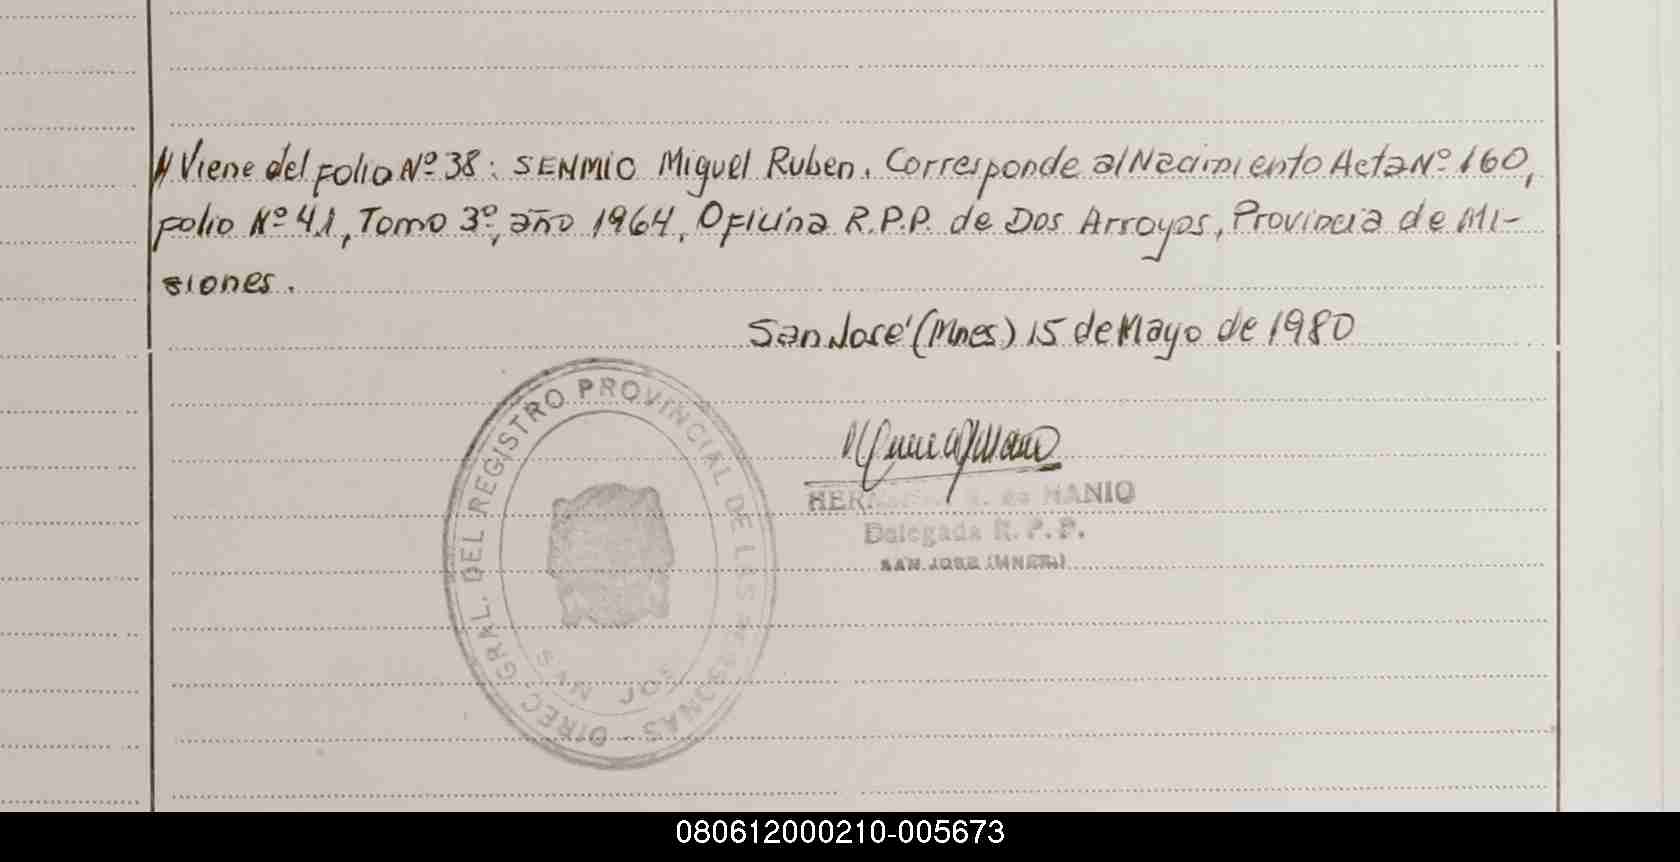 // Viene del folio Nº 38: SENMIC Miguel Ruben. Corresponde al Nacimiento Acta Nº 160,
folio Nº 41, Tomo 3º, año 1964, Oficina R.P.P. de Dos Arroyos, Provincia de Mi-
siones.
San José (Mnes) 15 de Mayo de 1980
DIREC. GRAL. DEL REGISTRO PROVINCIAL DE LAS PERSONAS
SAN JOSE
de HANIO
Delegada R. P. P.
SAN JOSE (MNES.)
080612000210-005673